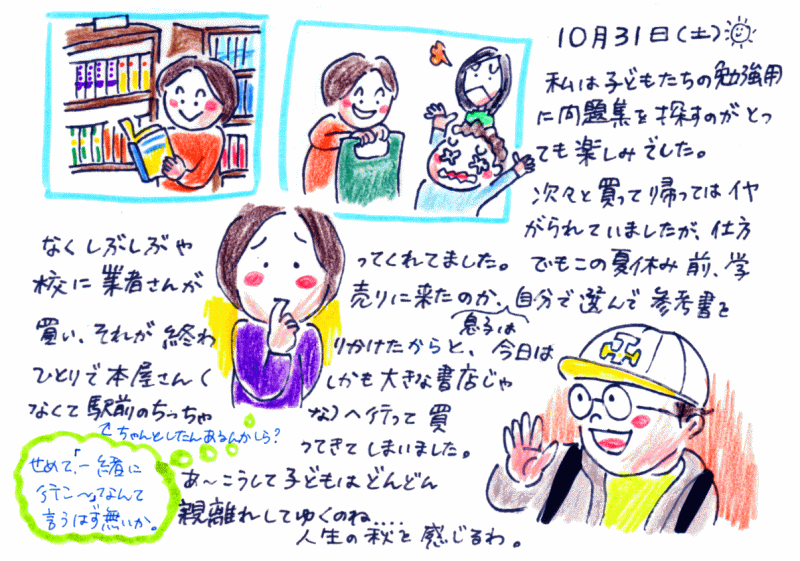 10月31日(土)
私は子どもたちの勉強用
に問題集を探すのがとっ
ても楽しみでした。
次々と買って帰ってはイヤ
がられていましたが、仕方
なくしぶしぶや ってくれてました。 でもこの夏休み前、学
校に業者さんが 売りに来たのか、自分で選んで参考書を
買い、それが終わ りかけたからと、息子は今日は
ひとりで本屋さん( しかも大きな書店じゃ
なくて駅前のちっちゃ な)へ行って買
ってきてしまいました。
ちゃんとしたんあるんかしら?
せめて、「一緒に
行こ〜」なんて
言うはず無いか。
あ〜こうして子どもはどんどん
親離れしてゆくのね....
人生の秋を感じるわ。